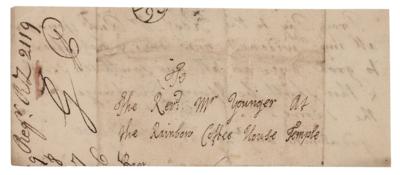 To
The Revd Mr Younger At
the Rainbow Coffee House Temple
Barr
2119